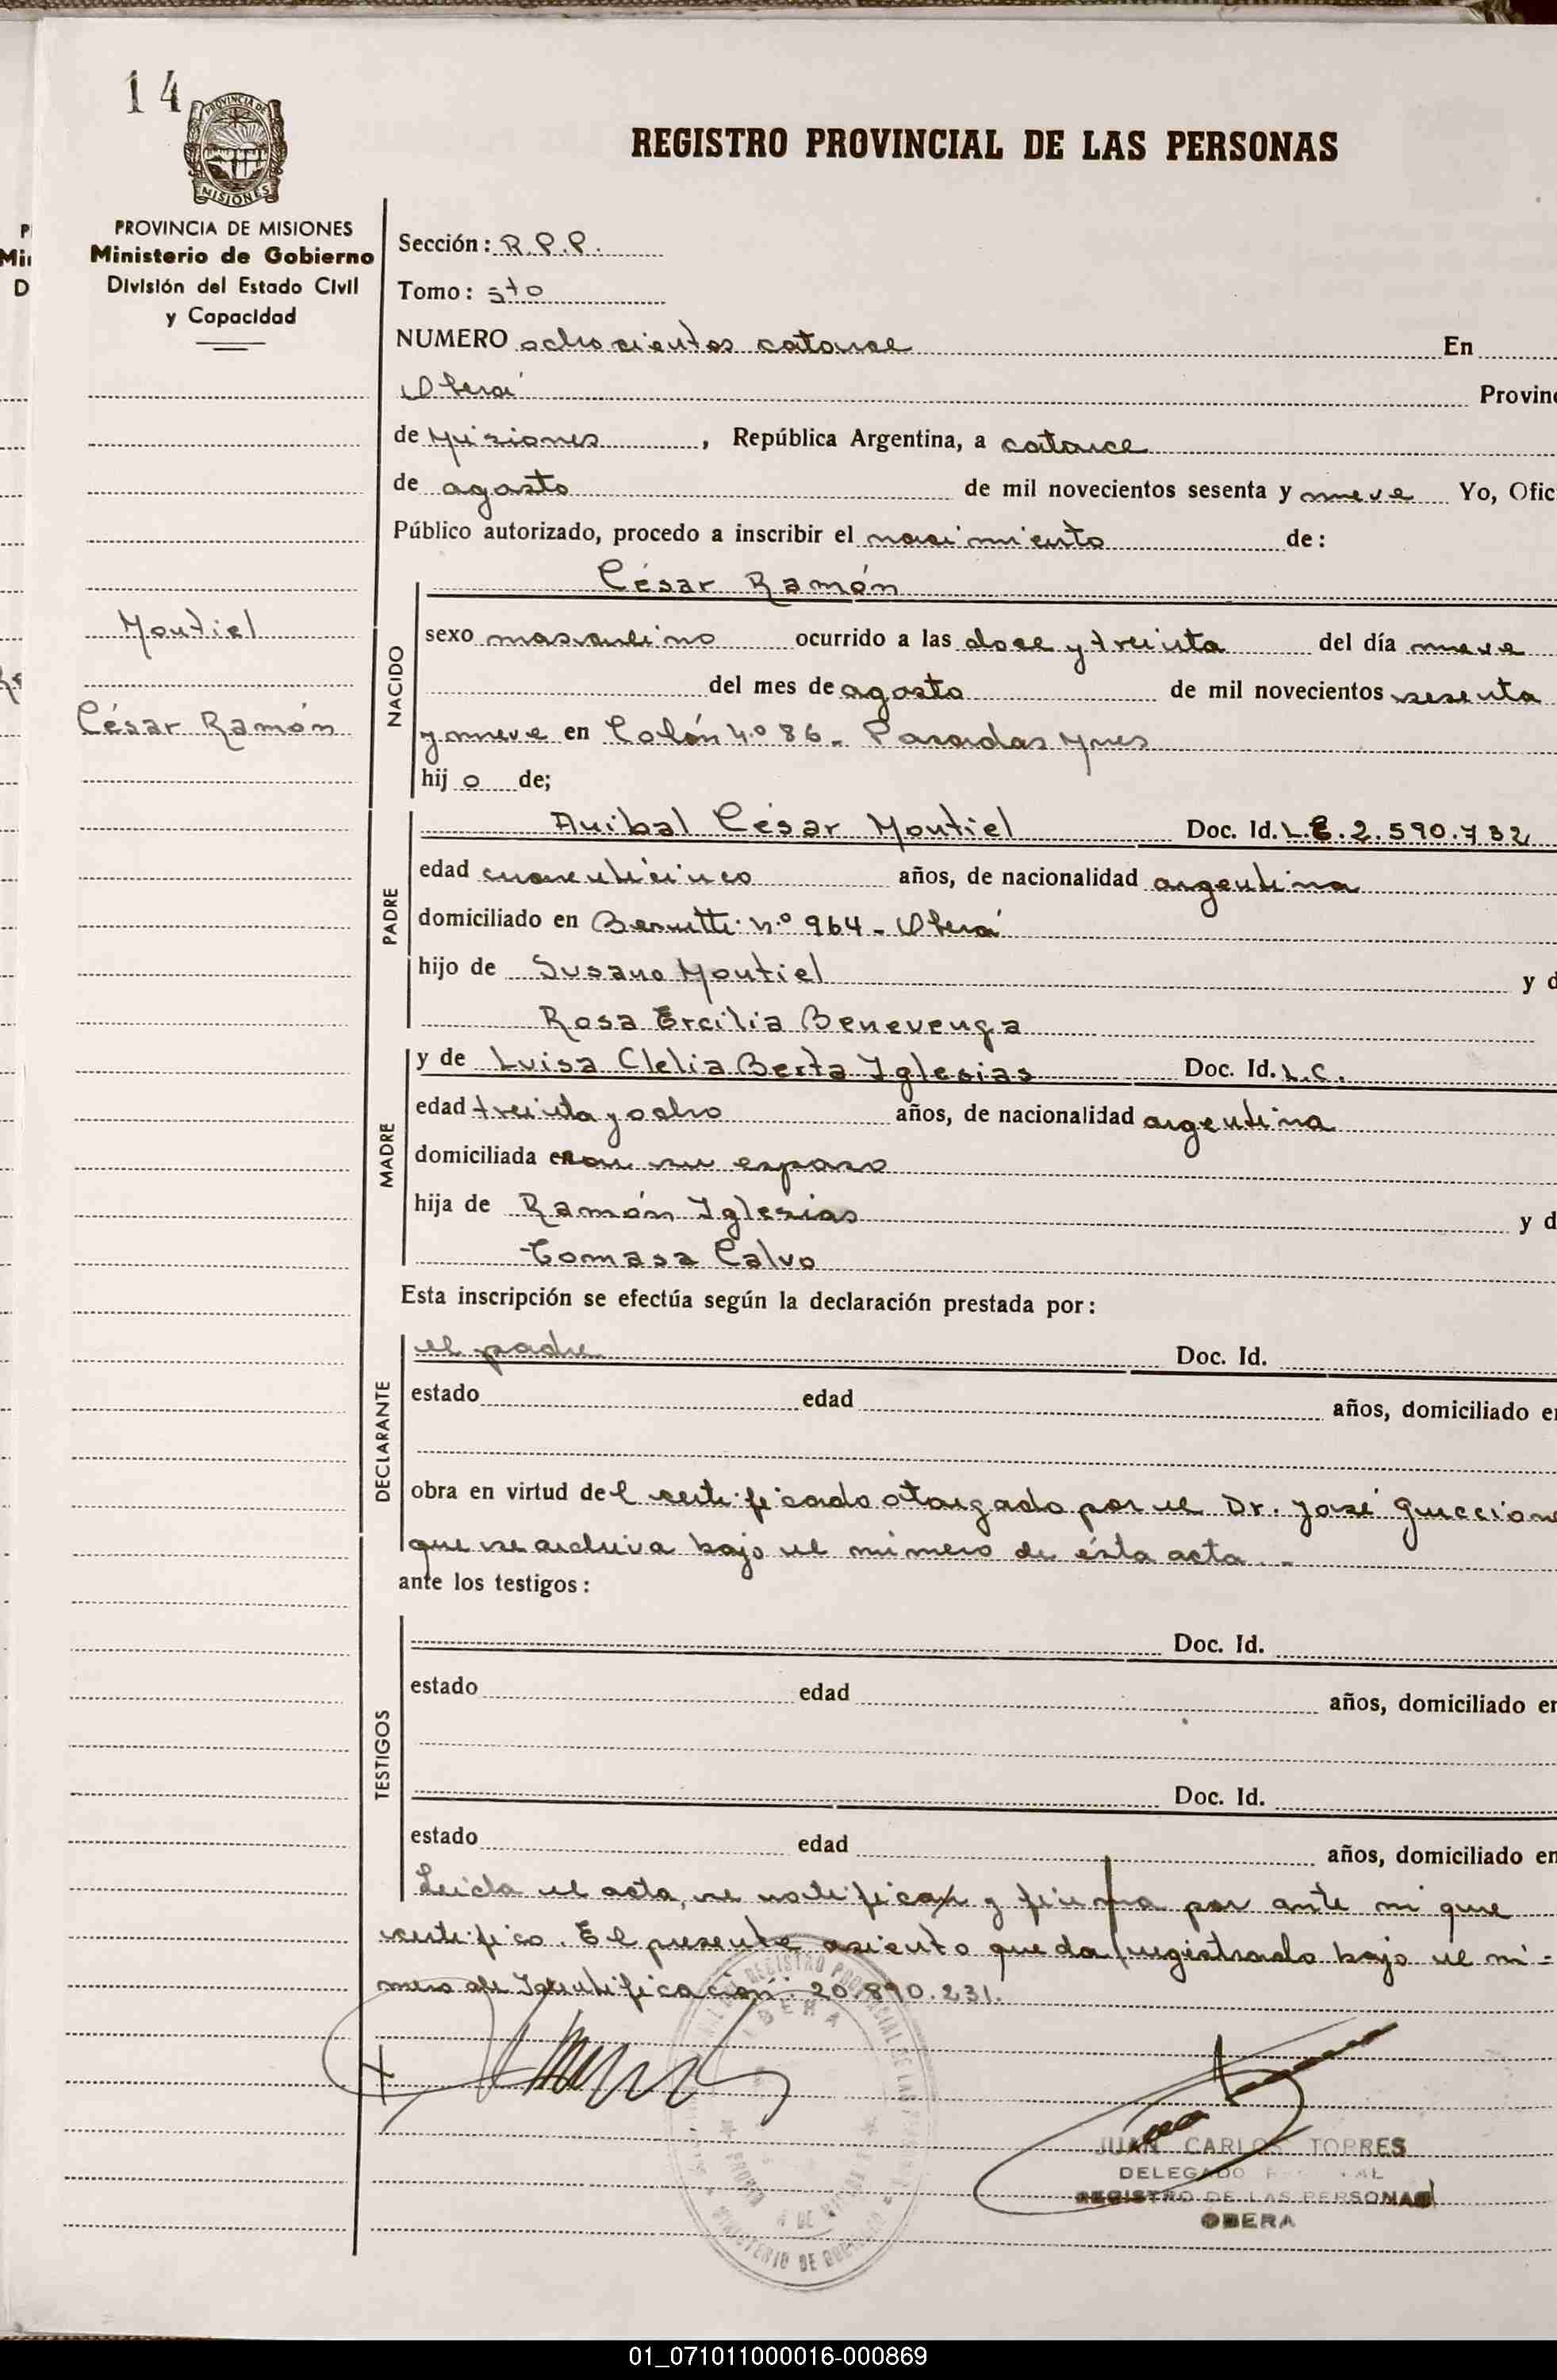 14
PROVINCIA DE
MISIONES
REGISTRO PROVINCIAL DE LAS PERSONAS
PROVINCIA DE MISIONES
Ministerio de Gobierno
División del Estado Civil
y Capacidad
Montiel
César Ramón
Sección: R.P.P.
Tomo: 5to
NUMERO ochocientos catorce En
Oberá Provinc
de Misiones, República Argentina, a catorce
de agosto de mil novecientos sesenta y nueve Yo, Ofic
Público autorizado, procedo a inscribir el nacimiento de:
César Ramón
NACIDO
sexo masculino ocurrido a las doce y treinta del día nueve
del mes de agosto de mil novecientos sesenta
y nueve en Colón Nº 86 - Posadas Mnes
hijo de;
PADRE
Anibal César Montiel Doc. Id. L.E. 2.590.732
edad cuarenticinco años, de nacionalidad argentina
domiciliado en Nº 964 - Oberá
hijo de Susano Montiel y d
Rosa Ercilia Benevenga
MADRE
y de Luisa Clelia Berta Iglesias Doc. Id. L.C.
edad treinta y ocho años, de nacionalidad argentina
domiciliada con su esposo
hija de Ramón Iglesias y d
Tomasa Calvo
Esta inscripción se efectúa según la declaración prestada por:
DECLARANTE
el padre Doc. Id.
estado edad años, domiciliado en
obra en virtud del certificado otorgado por el Dr. José Guccione
que se archiva bajo el número de ésta acta.-
ante los testigos:
TESTIGOS
Doc. Id.
estado edad años, domiciliado en
Doc. Id.
estado edad años, domiciliado en
Leida el acta, se notifica y firma por ante mi que
certifico. El presente asiento queda registrado bajo el nú=
mero de Identificación: 20.890.231.
OBERA
MINISTERIO DE GOBIERNO
JUAN CARLOS TORRES
DELEGADO
REGISTRO DE LAS PERSONAS
OBERA
01_071011000016-000869